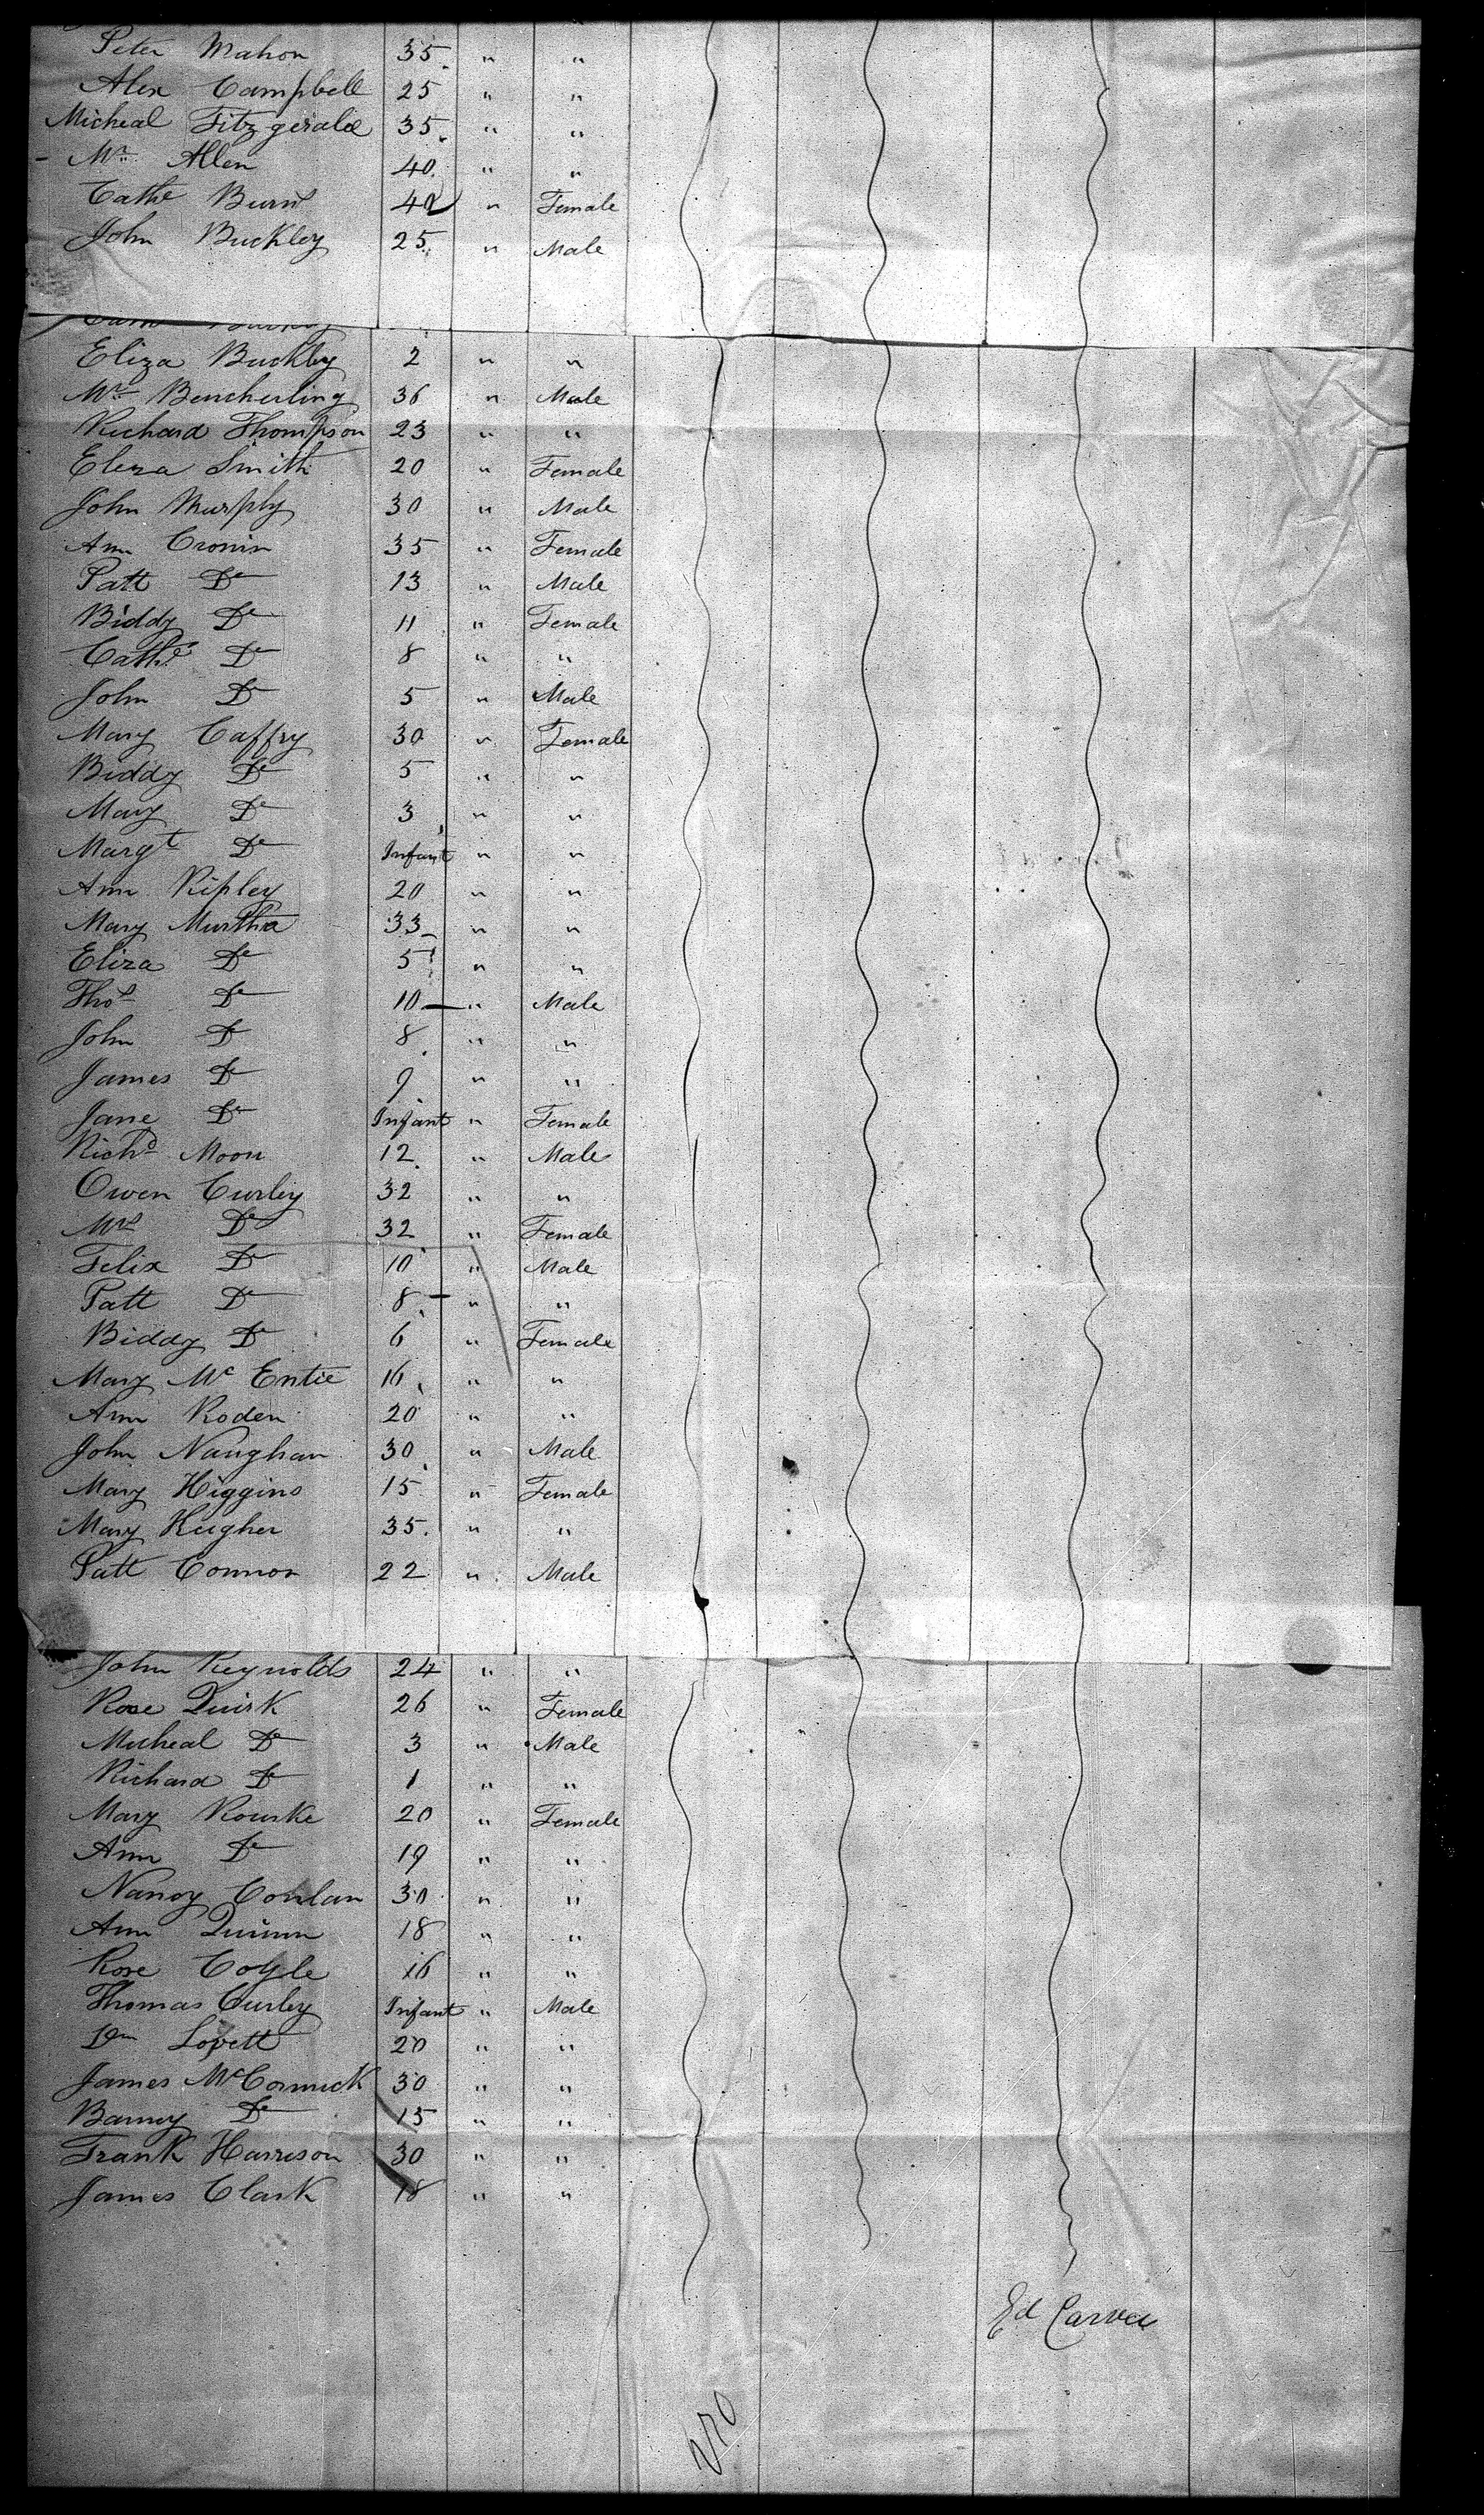 Peter Mahon 35 " "
Alex Campbell 25 " "
Micheal Fitzgerald 35 " "
Mr Allen 40 " "
Cathe Burns 40 " Female
John Buckley 25 " Male
Eliza Buckley 2 " "
Mr Bencherling 36 " Male
Richard Thompson 23 " "
Eliza Smith 20 " Female
John Murphy 30 " Male
Ann Cronin 35 " Female
Patt Do 13 " Male
Biddy Do 11 " Female
Cathe Do 8 " "
John Do 5 " Male
Mary Caffry 30 " Female
Biddy Do 5 " "
Mary Do 3 " "
Margt Do Infant " "
Ann Ripley 20 " "
Mary Murtha 33 " "
Eliza Do 5 " "
Thos Do 10 " Male
John Do 8 " "
James Do 9 " "
Jane Do Infant " Female
Richd Moon 12 " Male
Owen Curley 32 " "
Mrs Do 32 " Female
Felix Do 10 " Male
Patt Do 8 " "
Biddy Do 6 " Female
Mary Mc Entie 16 " "
Ann Roden 20 " "
John Naughan 30 " Male
Mary Higgins 15 " Female
Mary Hugher 35 " "
Patt Connor 22 " Male
John Reynolds 24 " "
Rose Quirk 26 " Female
Micheal Do 3 " Male
Richard Do 1 " "
Mary Rourke 20 " Female
Ann Do 19 " "
Nancy Conlan 30 " "
Ann Quinn 18 " "
Rose Coyle 16 " "
Thomas Curley Infant " Male
Wm Lovett 20 " "
James McCormick 30 " "
Barney Do 15 " "
Frank Harrison 30 " "
James Clark 18 " "
Ed Carver